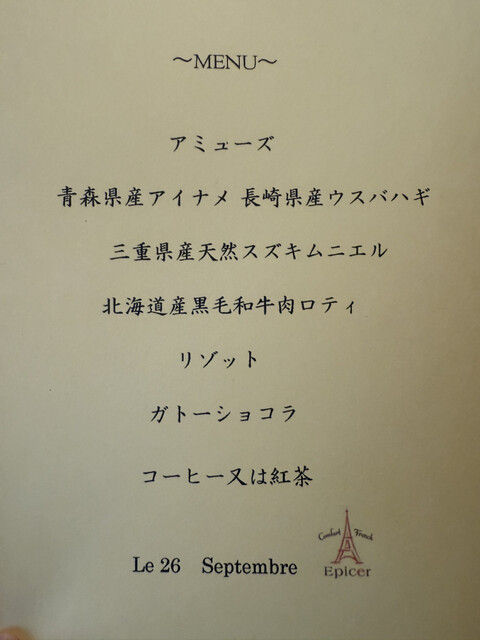 ～MENU～
アミューズ
青森県産アイナメ 長崎県産ウスバハギ
三重県産天然スズキムニエル
北海道産黒毛和牛肉ロティ
リゾット
ガトーショコラ
コーヒー又は紅茶
Le 26 Septembre
Comfort French
Epicer